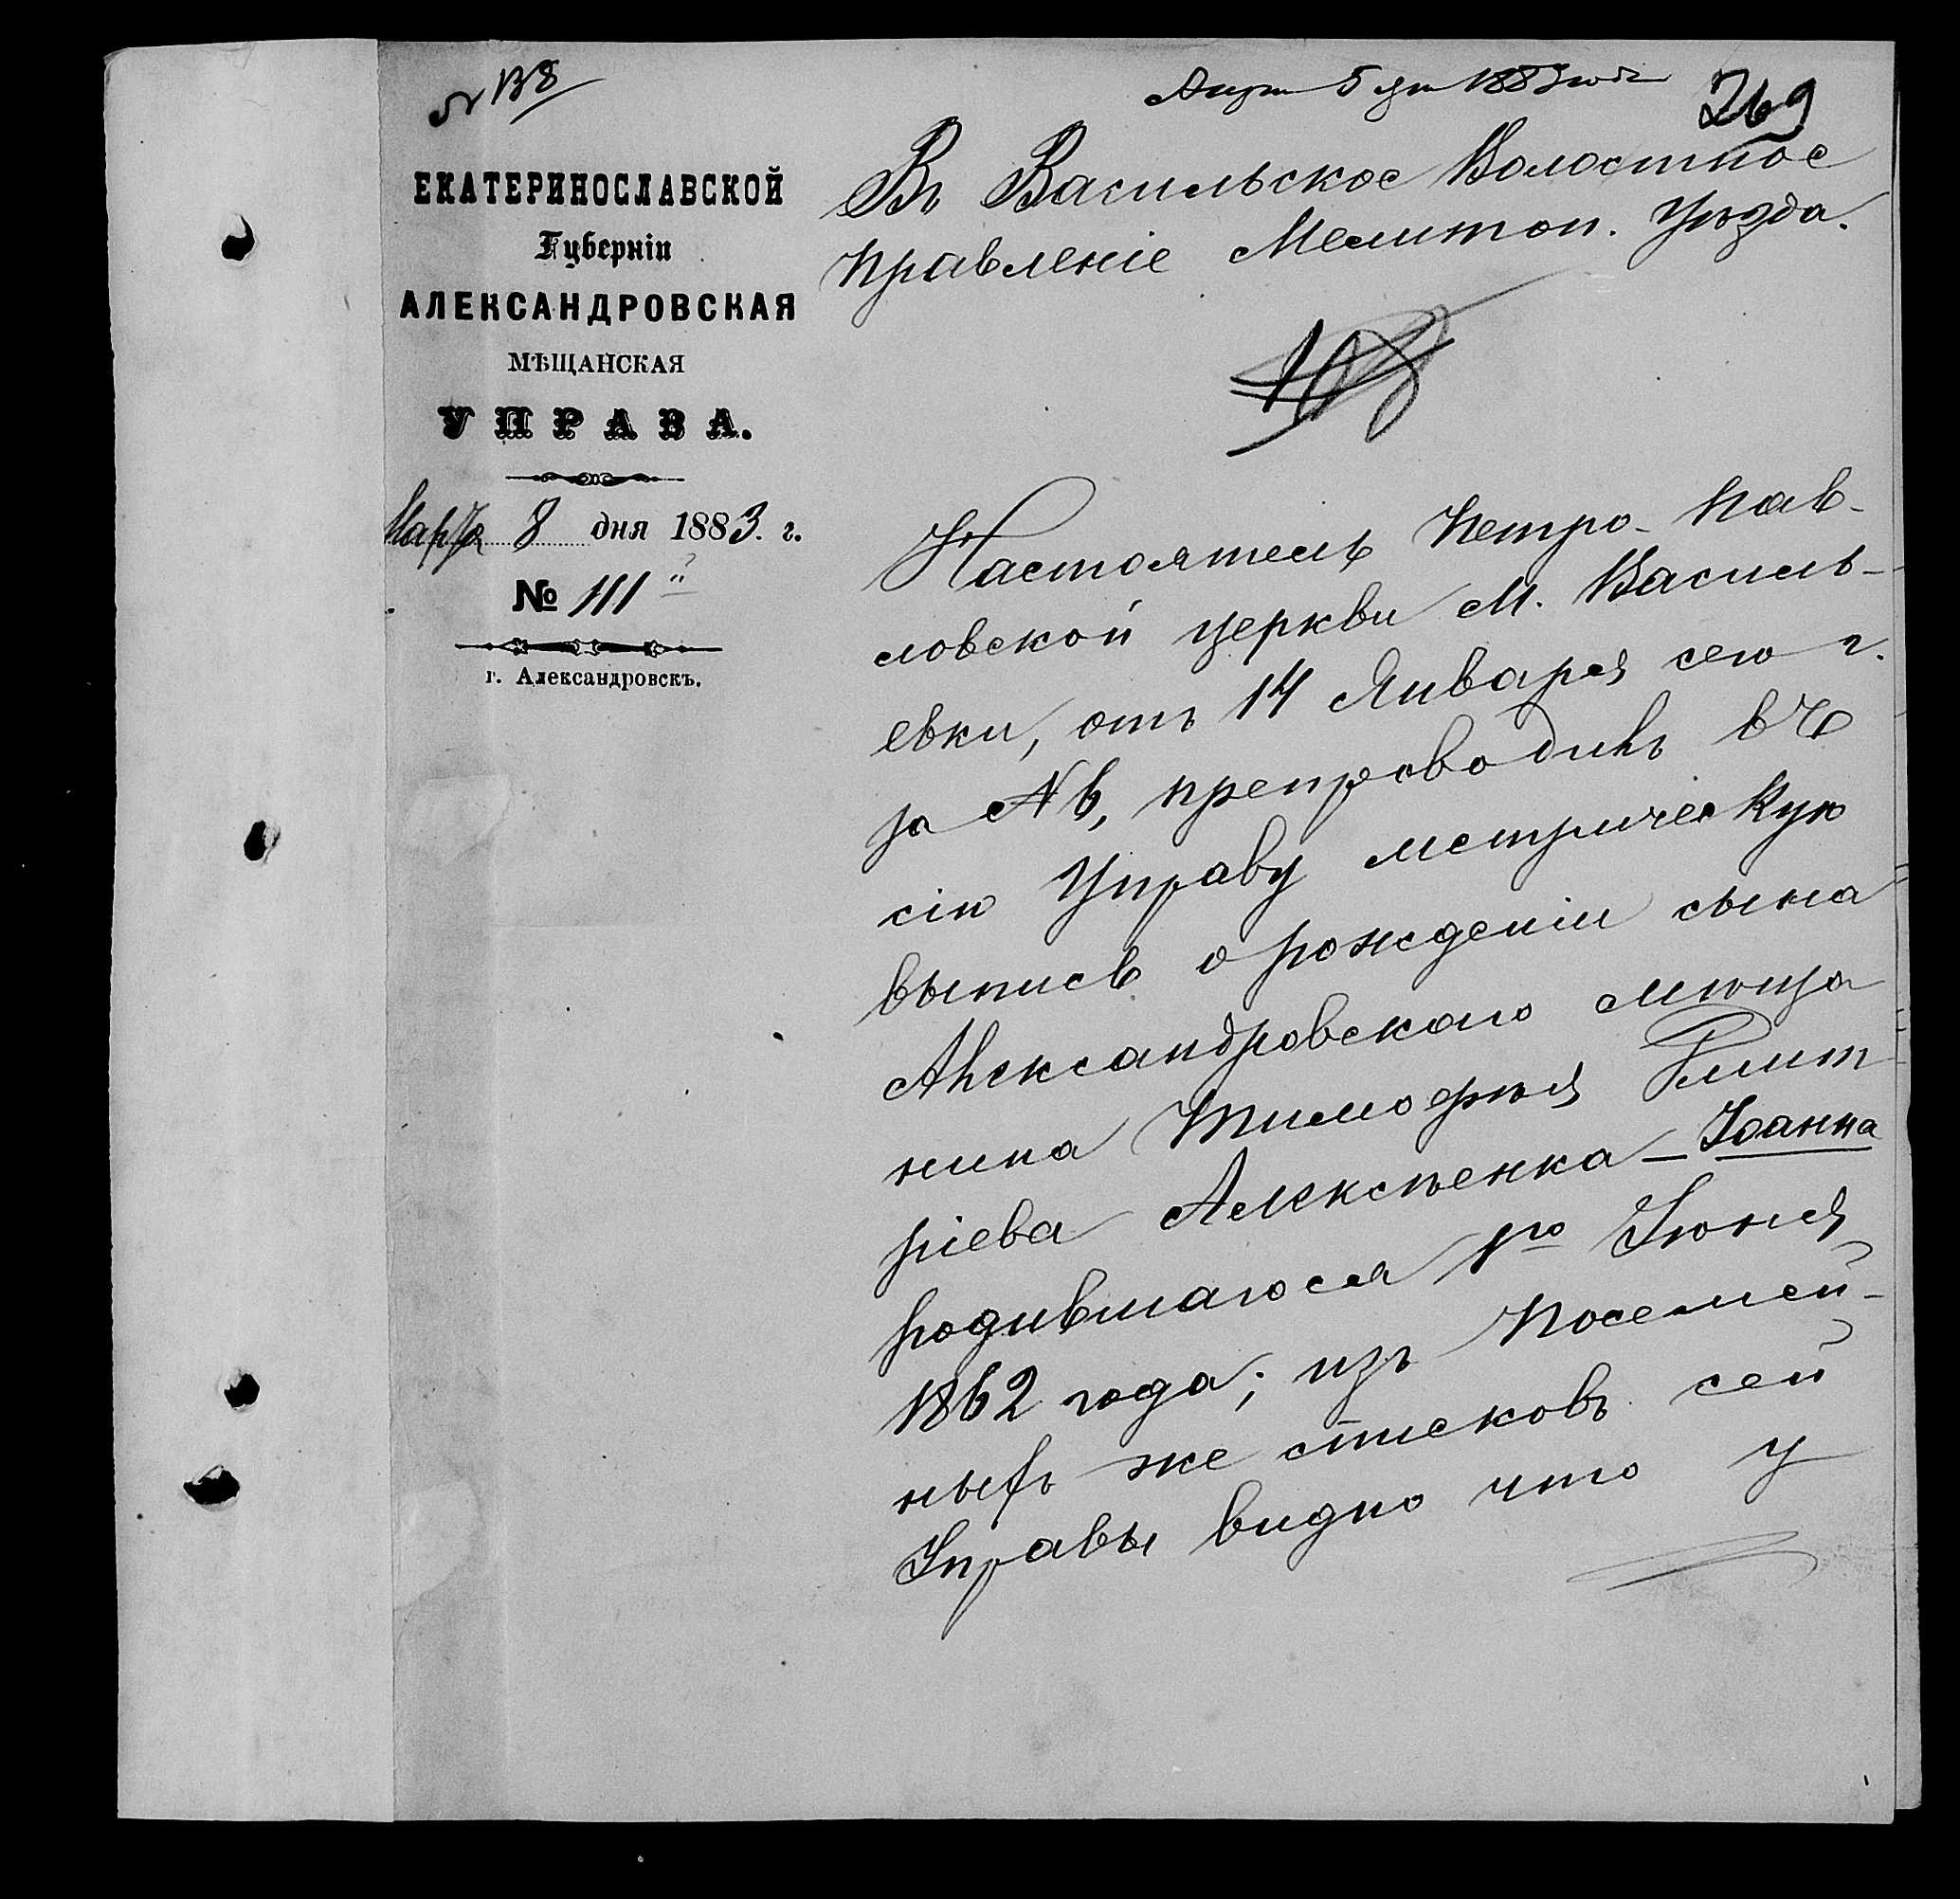 № 138
Апр 5 дн 1883 года
269
ЕКАТЕРИНОСЛАВСКОЙ
Губерніи
АЛЕКСАНДРОВСКАЯ
МѢЩАНСКАЯ
УПРАВА.
Марта 8 дня 1883. г.
№ 111
г. Александровскъ.
Въ Васильское Волостное
Правленіе Мелитоп. Уѣзда.
Настоятель Петро-Пав-
ловской церкви М. Василь-
евки, отъ 14 Января сего г.
за № 6, препроводилъ въ
сію Управу метрическую
выпись о рожденіи сына
Александровскаго мѣща
нина Тимофѣя Дмит
ріева Алексѣенка – Іоанна
родившагося 1го Іюня
1862 года; изъ Посемей-
ныхъ же списковъ сей
Управы видно что у